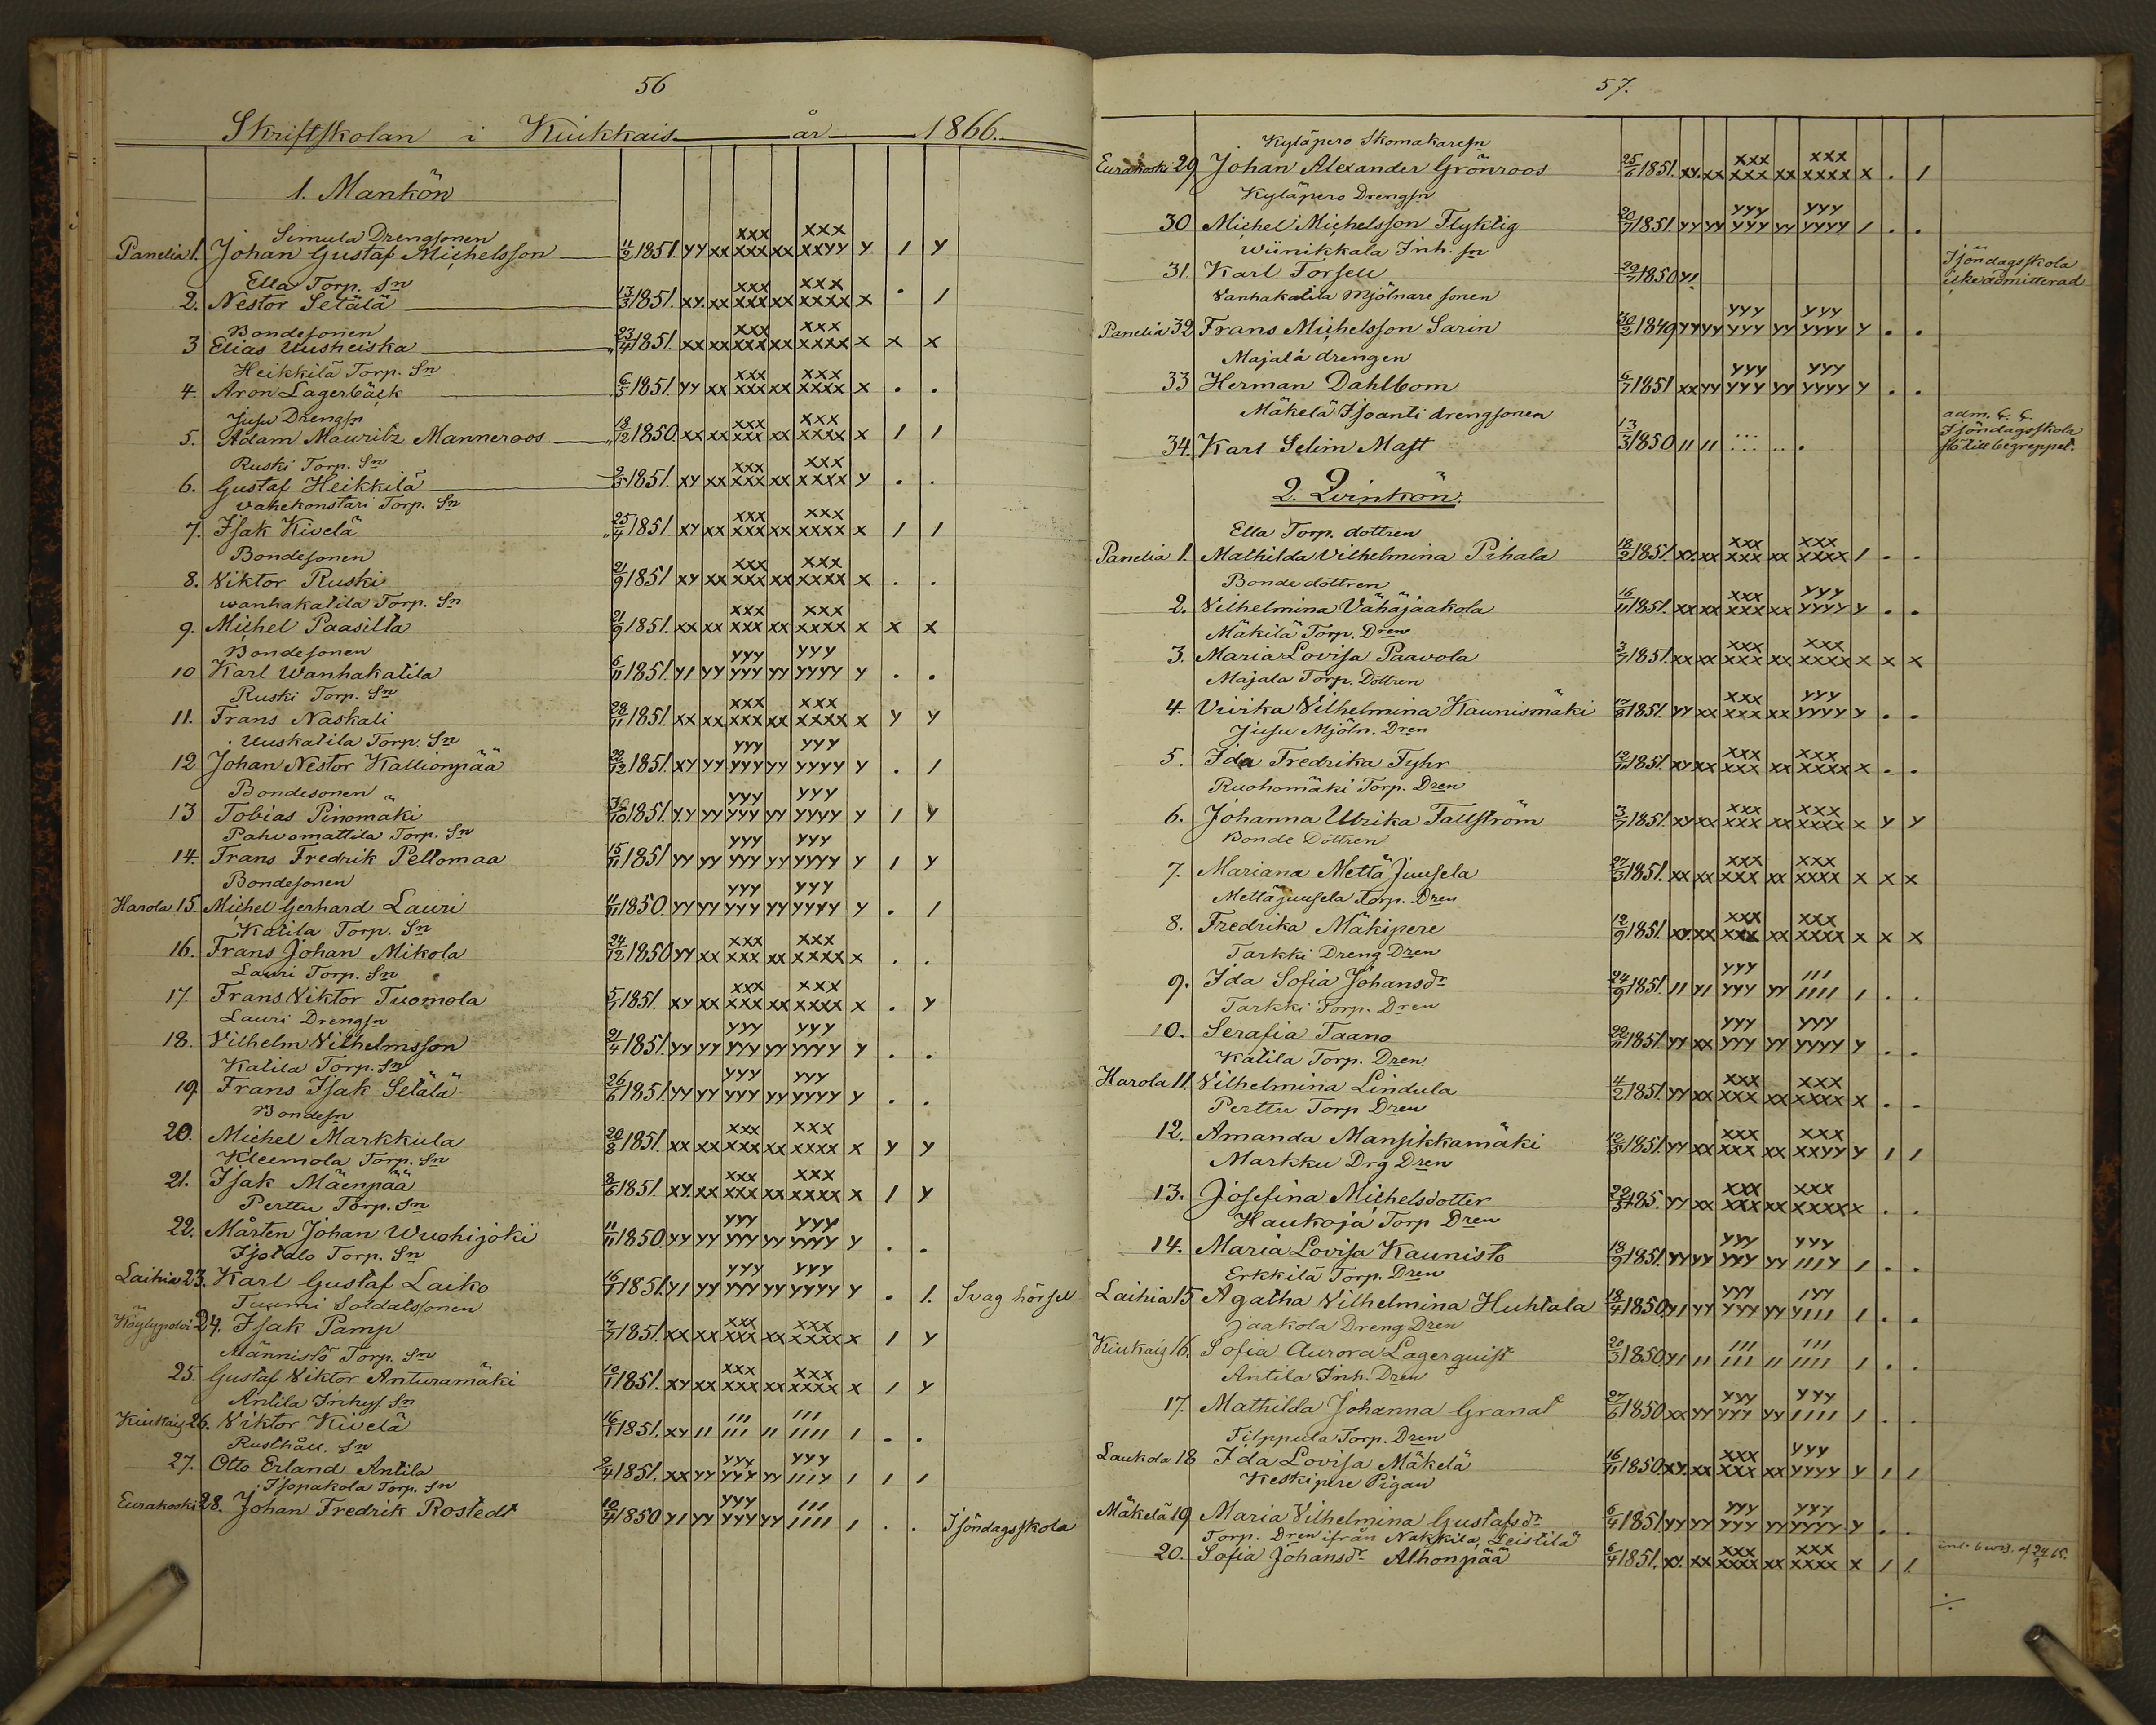 56
Skriftskolan i Kiukkais år 1866.
1. Mankön
Simula Drengsonen
Panelia 1. Johan Gustaf Michelsson 4/2 1851. yy xx xxx xxx xx xxx xxyy y 1 y
Ella Torp. Sn
2. Nestor Setälä 13/3 1851. xy. xx xxx xxx xx xxx xxxx x . 1
Bondesonen
3 Elias Uusheiska 23/4 1851. xx xx xxx xxx xx xxx xxxx x x x
Heikkilä Torp. Sn
4. Aron Lagerbäck 6/5 1851. yy xx xxx xxx xx xxx xxxx x . .
Jusu Drengsn
5. Adam Mauritz Manneroos 18/12 1850. xx xx xxx xxx xx xxx xxxx x 1 1
Ruski Torp. Sn
6. Gustaf Heikkilä 2/5 1851. xy xx xxx xxx xx xxx xxxx y . .
Vahekonstari Torp. Sn
7. Isak Kivelä 25/4 1851. xy xx xxx xxx xx xxx xxxx x 1 1
Bondesonen
8. Viktor Ruski 21/9 1851 xy xx xxx xxx xx xxx xxxx x . .
wanhakatila Torp. Sn
9. Michel Paasilta 21/9 1851. xx xx xxx xxx xx xxx xxxx x x x
Bondesonen
10 Karl Wanhakatila 6/11 1851. y1 yy yyy yyy yy yyy yyyy y . .
Ruski Torp. Sn
11. Frans Naskali 28/11 1851. xx xx xxx xxx xx xxx xxxx x y y
Uuskatila Torp. Sn
12 Johan Nestor Kallionpää 22/12 1851. xy yy yyy yyy yy yyy yyyy y . 1
Bondesonen
13 Tobias Pinomäki 30/10 1851. yy yy yyy yyy yy yyy yyyy y 1 y
Pahvomattila Torp. Sn
14. Frans Fredrik Peltomaa 15/11 1851 yy yy yyy yyy yy yyy yyyy y 1 y
Bondesonen
Harola 15. Michel Gerhard Lauri 4/11 1850. yy yy yyy yyy yy yyy yyyy y . 1
Katila Torp. Sn
16. Frans Johan Mikola 24/12 1850 yy xx xxx xxx xx xxx xxxx x . .
Lauri Torp. Sn
17. Frans Viktor Tuomola 5/1 1851. xy xx xxx xxx xx xxx xxxx x . y
Lauri Drengsn
18. Vilhelm Vilhelmsson 21/4 1851. yy yy yyy yyy yy yyy yyyy y . .
Katila Torp. Sn
19. Frans Isak Setälä 26/6 1851. yy yy yyy yyy yy yyy yyyy y . .
Bondesn
20. Michel Markkula 20/8 1851. xx xx xxx xxx xx xxx xxxx x y y
Kleemola Torp. Sn
21. Isak Mäenpää 8/6 1851. xy. xx xxx xxx xx xxx xxxx x 1 y
Perttu Torp. Sn
22. Mårten Johan Wuohijoki 11/11 1850. yy yy yyy yyy yy yyy yyyy y . .
Isotalo Torp. Sn
Laihia 23. Karl Gustaf Laiko 16/7 1851. y1 yy yyy yyy yy yyy yyyy y . 1. Svag hörsel
Tuomi Soldatssonen
Köylypolvi 24. Isak Pamp 7/7 1851. xx xx xxx xxx xx xxx xxxx x 1 y
Männistö Torp. Sn
25. Gustaf Viktor Anturamäki 10/11 1851. xy xx xxx xxx xx xxx xxxx x 1 y
Antila Inhys. Sn
Kiukais 26. Viktor Kivelä 16/1 1851. xy 11 111 111 11 111 1111 1 . .
Rusthåll. Sn
27. Otto Erland Antila 2/4 1851. xx yy yyy yyy yy yyy 111y 1 1 1
Isopakola Torp. Sn
Eurakoski 28. Johan Fredrik Rostedt 10/4 1850 y1 yy yyy yyy yy 111 1111 1 . . I söndagsskola
57.
Kyläpero Skomakaresn
Eurakoski 29 Johan Alexander Grönroos 25/6 1851. xy. xx xxx xxx xx xxx xxxx x . 1
Kyläpero Drengsn
30 Michel Michelsson Flyktig 20/7 1851 yy yy yyy yyy yy yyy yyyy 1 . .
Wiinikkala Inh. sn
31. Karl Forsell 29/7 1850 y1 I söndagsskola
icke admitterad
Vanhakatila Mjölnare sonen
Panelia 32 Frans Michelsson Sarin 30/2 1849 yy yy yyy yyy yy yyy yyyy y . .
Majala drengen
33 Herman Dahlbom 6/7 1851 xx yy yyy yyy yy yyy yyyy y . .
Mäkelä Isoanti drengsonen
34. Karl Selim Mast 13/3 1850 11 11 adm.
I söndagsskola
till begreppet.
2. Qvinkön.
Ella Torp. dottren
Panelia 1. Mathilda Vilhelmina Pihala 18/2 1851. xy. xx xxx xxx xx xxx xxxx 1 . .
Bonde dottren
2. Vilhelmina Vähäjaakola 16/11 1851. xx xx xxx xxx xx yyy yyyy y . .
Mäkilä Torp. Dren
3. Maria Lovisa Paavola 3/7 1851. xx xx xxx xxx xx xxx xxxx x x x
Majala Torp. Dottren
4. Vivika Vilhelmina Kaunismäki 17/8 1851. yy xx xxx xxx xx yyy yyyy y . .
Jusu Mjöln. Dren
5. Ida Fredrika Fyhr 12/10 1851. xy xx xxx xxx xx xxx xxxx x . .
Ruohomäki Torp. Dren
6. Johanna Ulrika Fallström 3/7 1851. xy xx xxx xxx xx xxx xxxx x y y
Bonde Dottren
7. Mariana Mettä Juusela 27/3 1851. xx xx xxx xxx xx xxx xxxx x x x
Mettäjuusela Torp. Dren
8. Fredrika Mäkipere 12/9 1851. xy. xx xxx xxx xx xxx xxxx x x x
Tarkki Dreng Dren
9. Ida Sofia Johansdr 24/9 1851. 11 y1 yyy yyy yy 111 1111 1 . .
Tarkki Torp. Dren
10. Serafia Taano 22/11 1851. yy xx yyy yyy yy yyy yyyy y . .
Katila Torp. Dren
Harola 11. Vilhelmina Lindula 4/2 1851. yy xx xxx xxx xx xxx xxxx x . .
Perttu Torp Dren
12. Amanda Mansikkamäki 12/3 1851. yy xx xxx xxx xx xxx xxyy y 1 1
Markku Drg Dren
13. Josefina Michelsdotter 29/3 185. yy xx xxx xxx xx xxx xxxx x . .
Haukoja Torp Dren
14. Maria Lovisa Kaunisto 18/9 1851. yy yy yyy yyy yy yyy 111y 1 . .
Erkkilä Torp. Dren
Laihia 15 Agatha Vilhelmina Huhtala 18/4 1850. y1 yy yyy yyy yy 1yy y111 1 . .
Jaakola Dreng Dren
Kiukais 16. Sofia Aurora Lagerquist 20/3 1850 y1 11 111 111 11 111 1111 1 . .
Antila Inh. Dren
17. Mathilda Johanna Granat 27/6 1850 xx yy yyy yyy yy yyy 1111 1 . .
Filppula Torp. Dren
Laukola 18 Ida Lovisa Mäkelä 16/11 1850 xy. xx xxx xxx xx yyy yyyy y 1 1
Keskipere Pigan
Mäkelä 19 Maria Vilhelmina Gustafsdr 6/4 1851 yy yy yyy yyy yy yyy yyyy y . .
Torp. Dren ifrån Nakkila, Leistilä
20. Sofia Johansdr Alhonpää 6/4 1851. xy. xx xxx xxxx xx xxx xxxx x 1 1. 24/9 65.